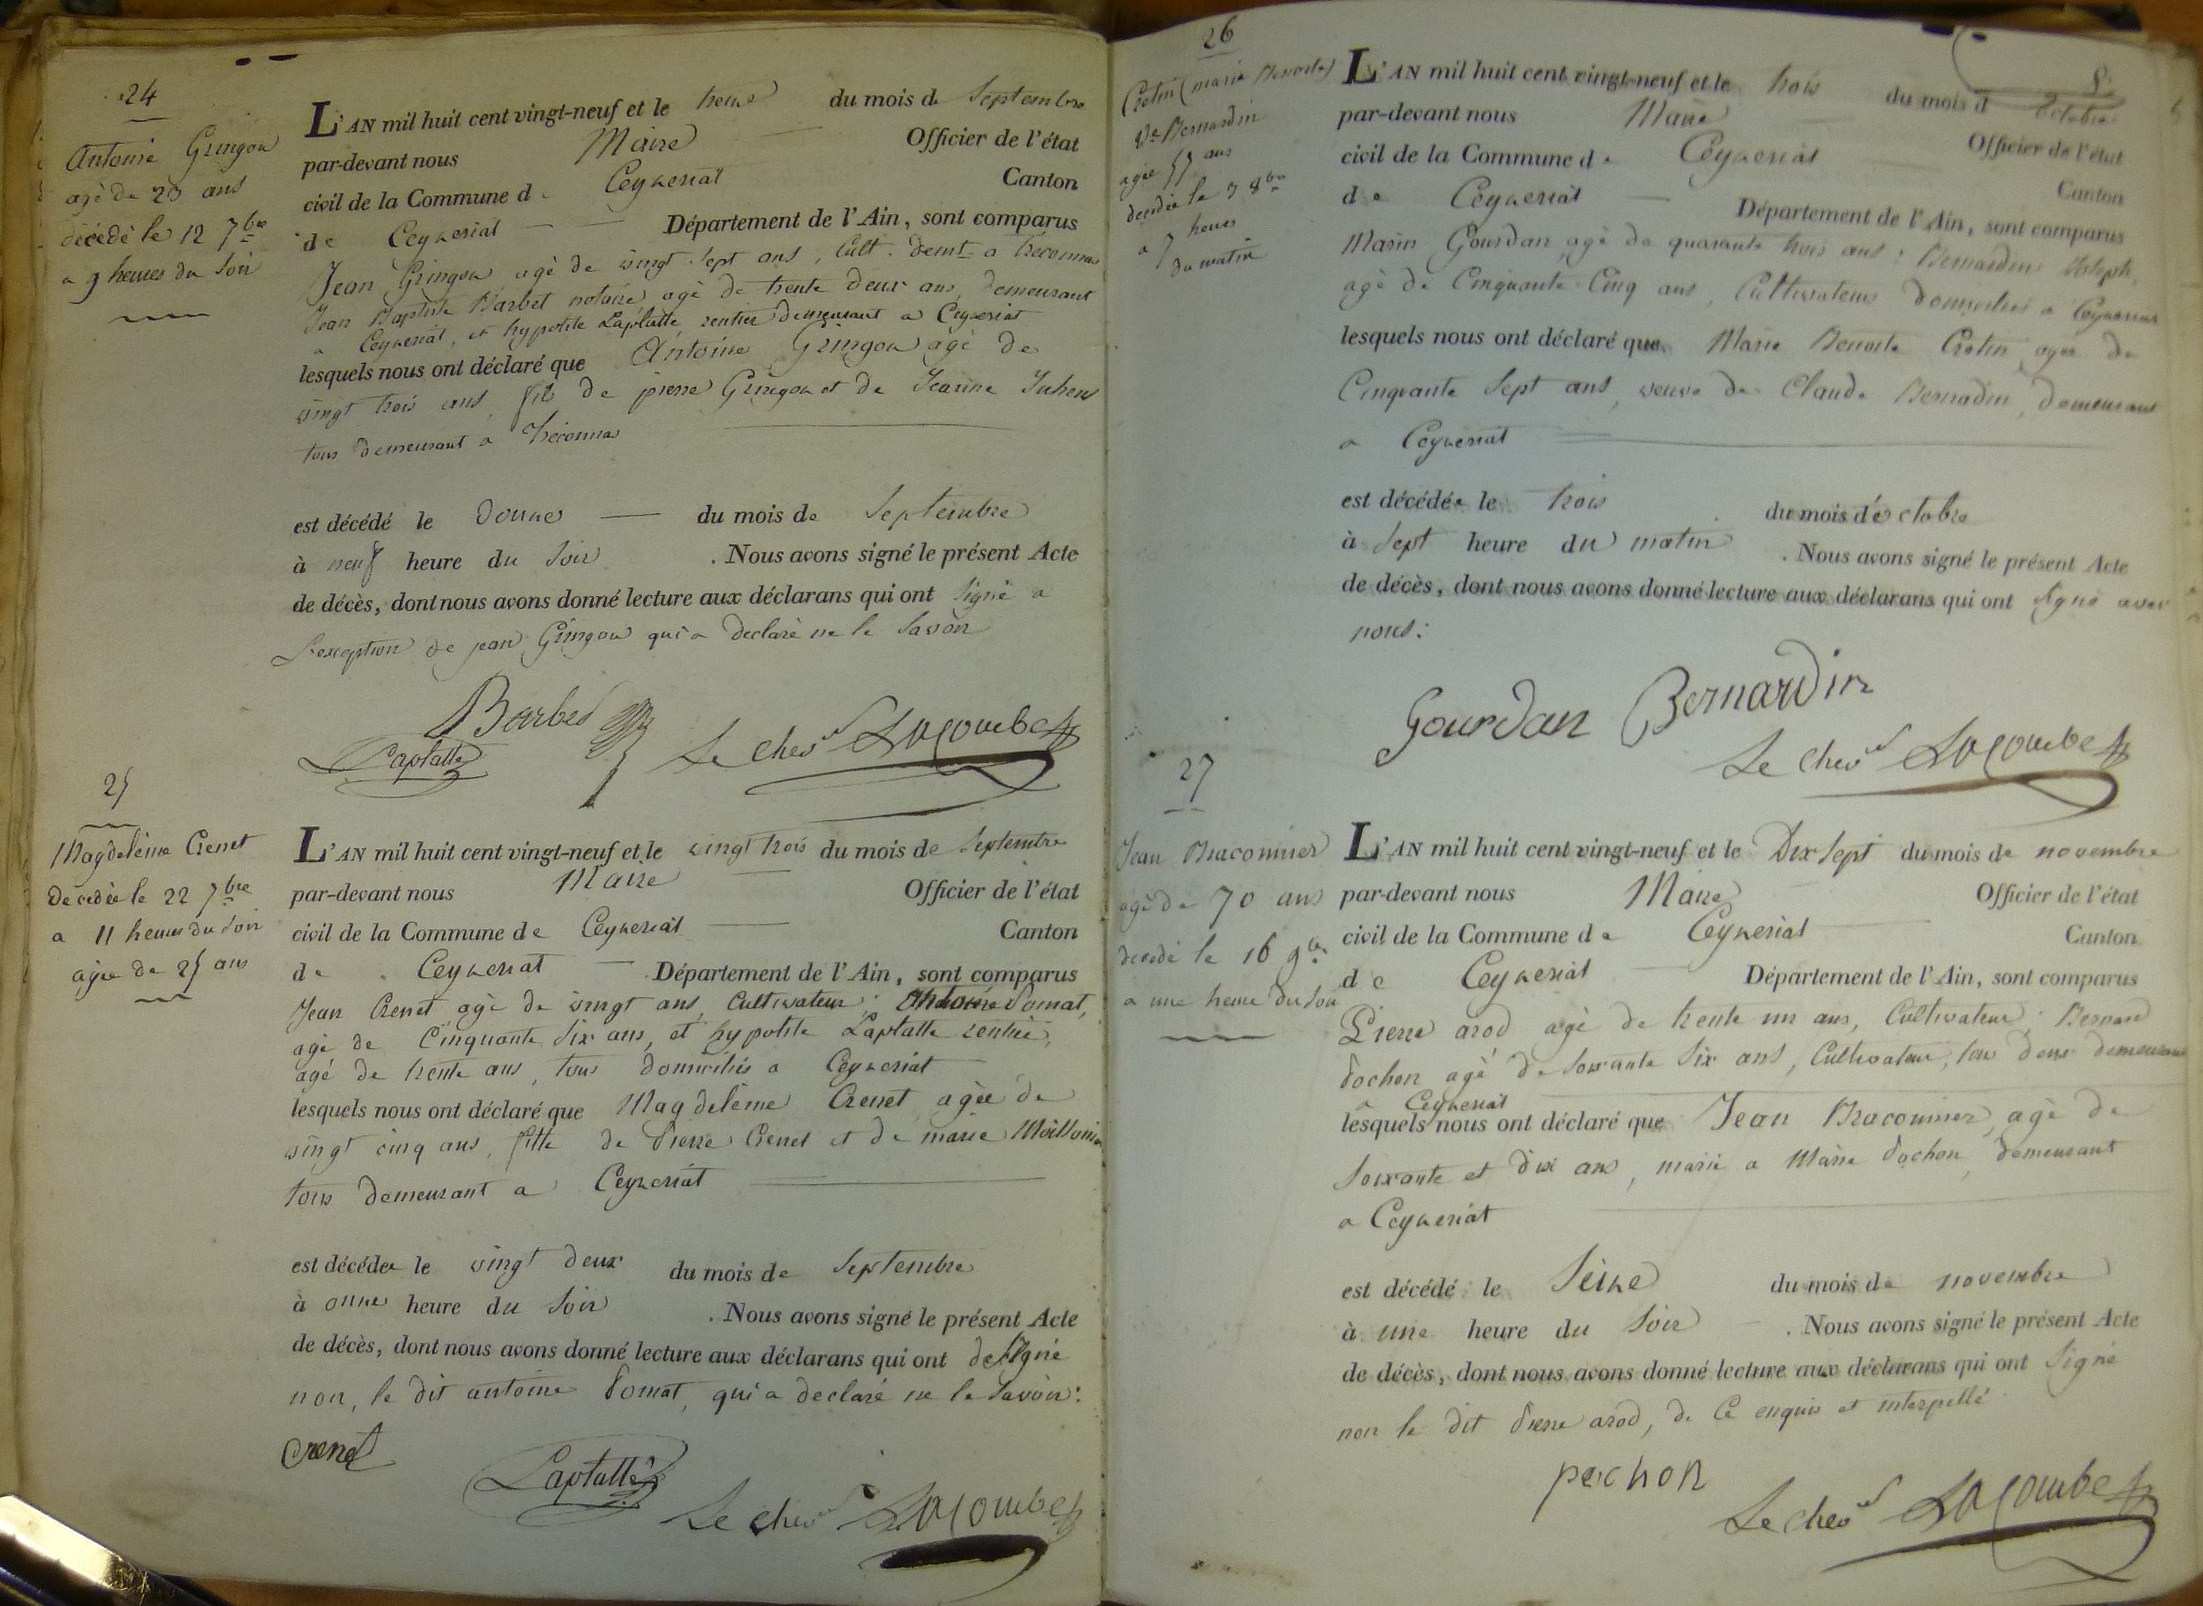 24
Antoine Gringoz
agé de 23 ans
décédé le 12 7bre
a 9 heures du soir
L'AN mil huit cent vingt-neuf et le treize du mois de Septembre
par-devant nous Maire Officier de l'état
civil de la Commune de Ceyzeriat Canton
de Ceyzeriat Département de l'Ain, sont comparus
Jean Gringoz agé de vingt sept ans, Cult. demt a
Jean Baptiste Barbet notaire agé de trente deux ans, demeurant
a Ceyzeriat, et hypolite Laplatte, rentier demeurant a Ceyzeriat
lesquels nous ont déclaré que Antoine Gringoz agé de
vingt trois ans, fils de pierre Gringoz et de Jeanne
tous demeurant a
est décédé le douze du mois de Septembre
à neuf heure du soir . Nous avons signé le présent Acte
de décès, dont nous avons donné lecture aux déclarans qui ont signé a
L'exception de jean Gringoz qui a declaré ne le savoir
Barbet
Laplatte
Le chevr Lacombe
25
Magdeleine Crenet
decedée le 22 7bre
a 11 heures du soir
agée de 25 ans
L'AN mil huit cent vingt-neuf et le vingt trois du mois de Septembre
par-devant nous Maire Officier de l'état
civil de la Commune de Ceyzeriat Canton
de Ceyzeriat Département de l'Ain, sont comparus
Jean Crenet agé de vingt ans, Cultivateur; Antoine Pomat,
agé de Cinquante six ans, et hypolite Laplatte rentier,
agé de trente ans, tous domiciliés a Ceyzeriat
lesquels nous ont déclaré que Magdeleine Crenet agée de
vingt cinq ans, fille de Pierre Crenet et de marie
tous demeurant a Ceyzeriat
est décédée le vingt deux du mois de Septembre
à onze heure du soir . Nous avons signé le présent Acte
de décès, dont nous avons donné lecture aux déclarans qui ont signé
non, le dit antoine Pomat, qui a declaré ne le savoir:
Crenet
Laplatte
Le chevr Lacombe
26
Cretin (marie Benoite)
Ve Bernardin
agée 57 ans
decedée le 3 8bre
a 7 heures
du matin
L'AN mil huit cent vingt-neuf et le trois du mois d Octobre
par-devant nous Maire Officier de l'état
civil de la Commune de Ceyzeriat Canton
de Ceyzeriat Département de l'Ain, sont comparus
Marin Gourdan agé de quarante trois ans; Bernardin
agé de Cinquante Cinq ans, Cultivateurs domiciliés a Ceyzeriat
lesquels nous ont déclaré que Marie Benoite Cretin agée de
Cinquante Sept ans, veuve de Claude Bernadin, demeurant
a Ceyzeriat
est décédée le trois du mois d'octobre
à Sept heure du matin . Nous avons signé le présent Acte
de décès, dont nous avons donné lecture aux déclarans qui ont signé avec
nous:
Gourdan Bernardin
Le chevr Lacombe
27
Jean Braconnier
agé de 70 ans
decedé le 16 9bre
a une heure du soir
L'AN mil huit cent vingt-neuf et le Dix Sept du mois de novembre
par-devant nous Maire Officier de l'état
civil de la Commune de Ceyzeriat Canton
de Ceyzeriat Département de l'Ain, sont comparus
Pierre arod agé de trente un ans, Cultivateur; Bernard
Pochon agé de soixante six ans, Cultivateur, tous deux demeurant
a Ceyzeriat
lesquels nous ont déclaré que Jean Braconnier, agé de
Soixante et dix ans, marié a Marie Pochon, demeurant
a Ceyzeriat
est décédé le Seize du mois de novembre
à une heure du Soir . Nous avons signé le présent Acte
de décès, dont nous avons donné lecture aux déclarans qui ont signé
non le dit Pierre arod, de Ce enquis et interpellé
pochon
Le chevr Lacombe